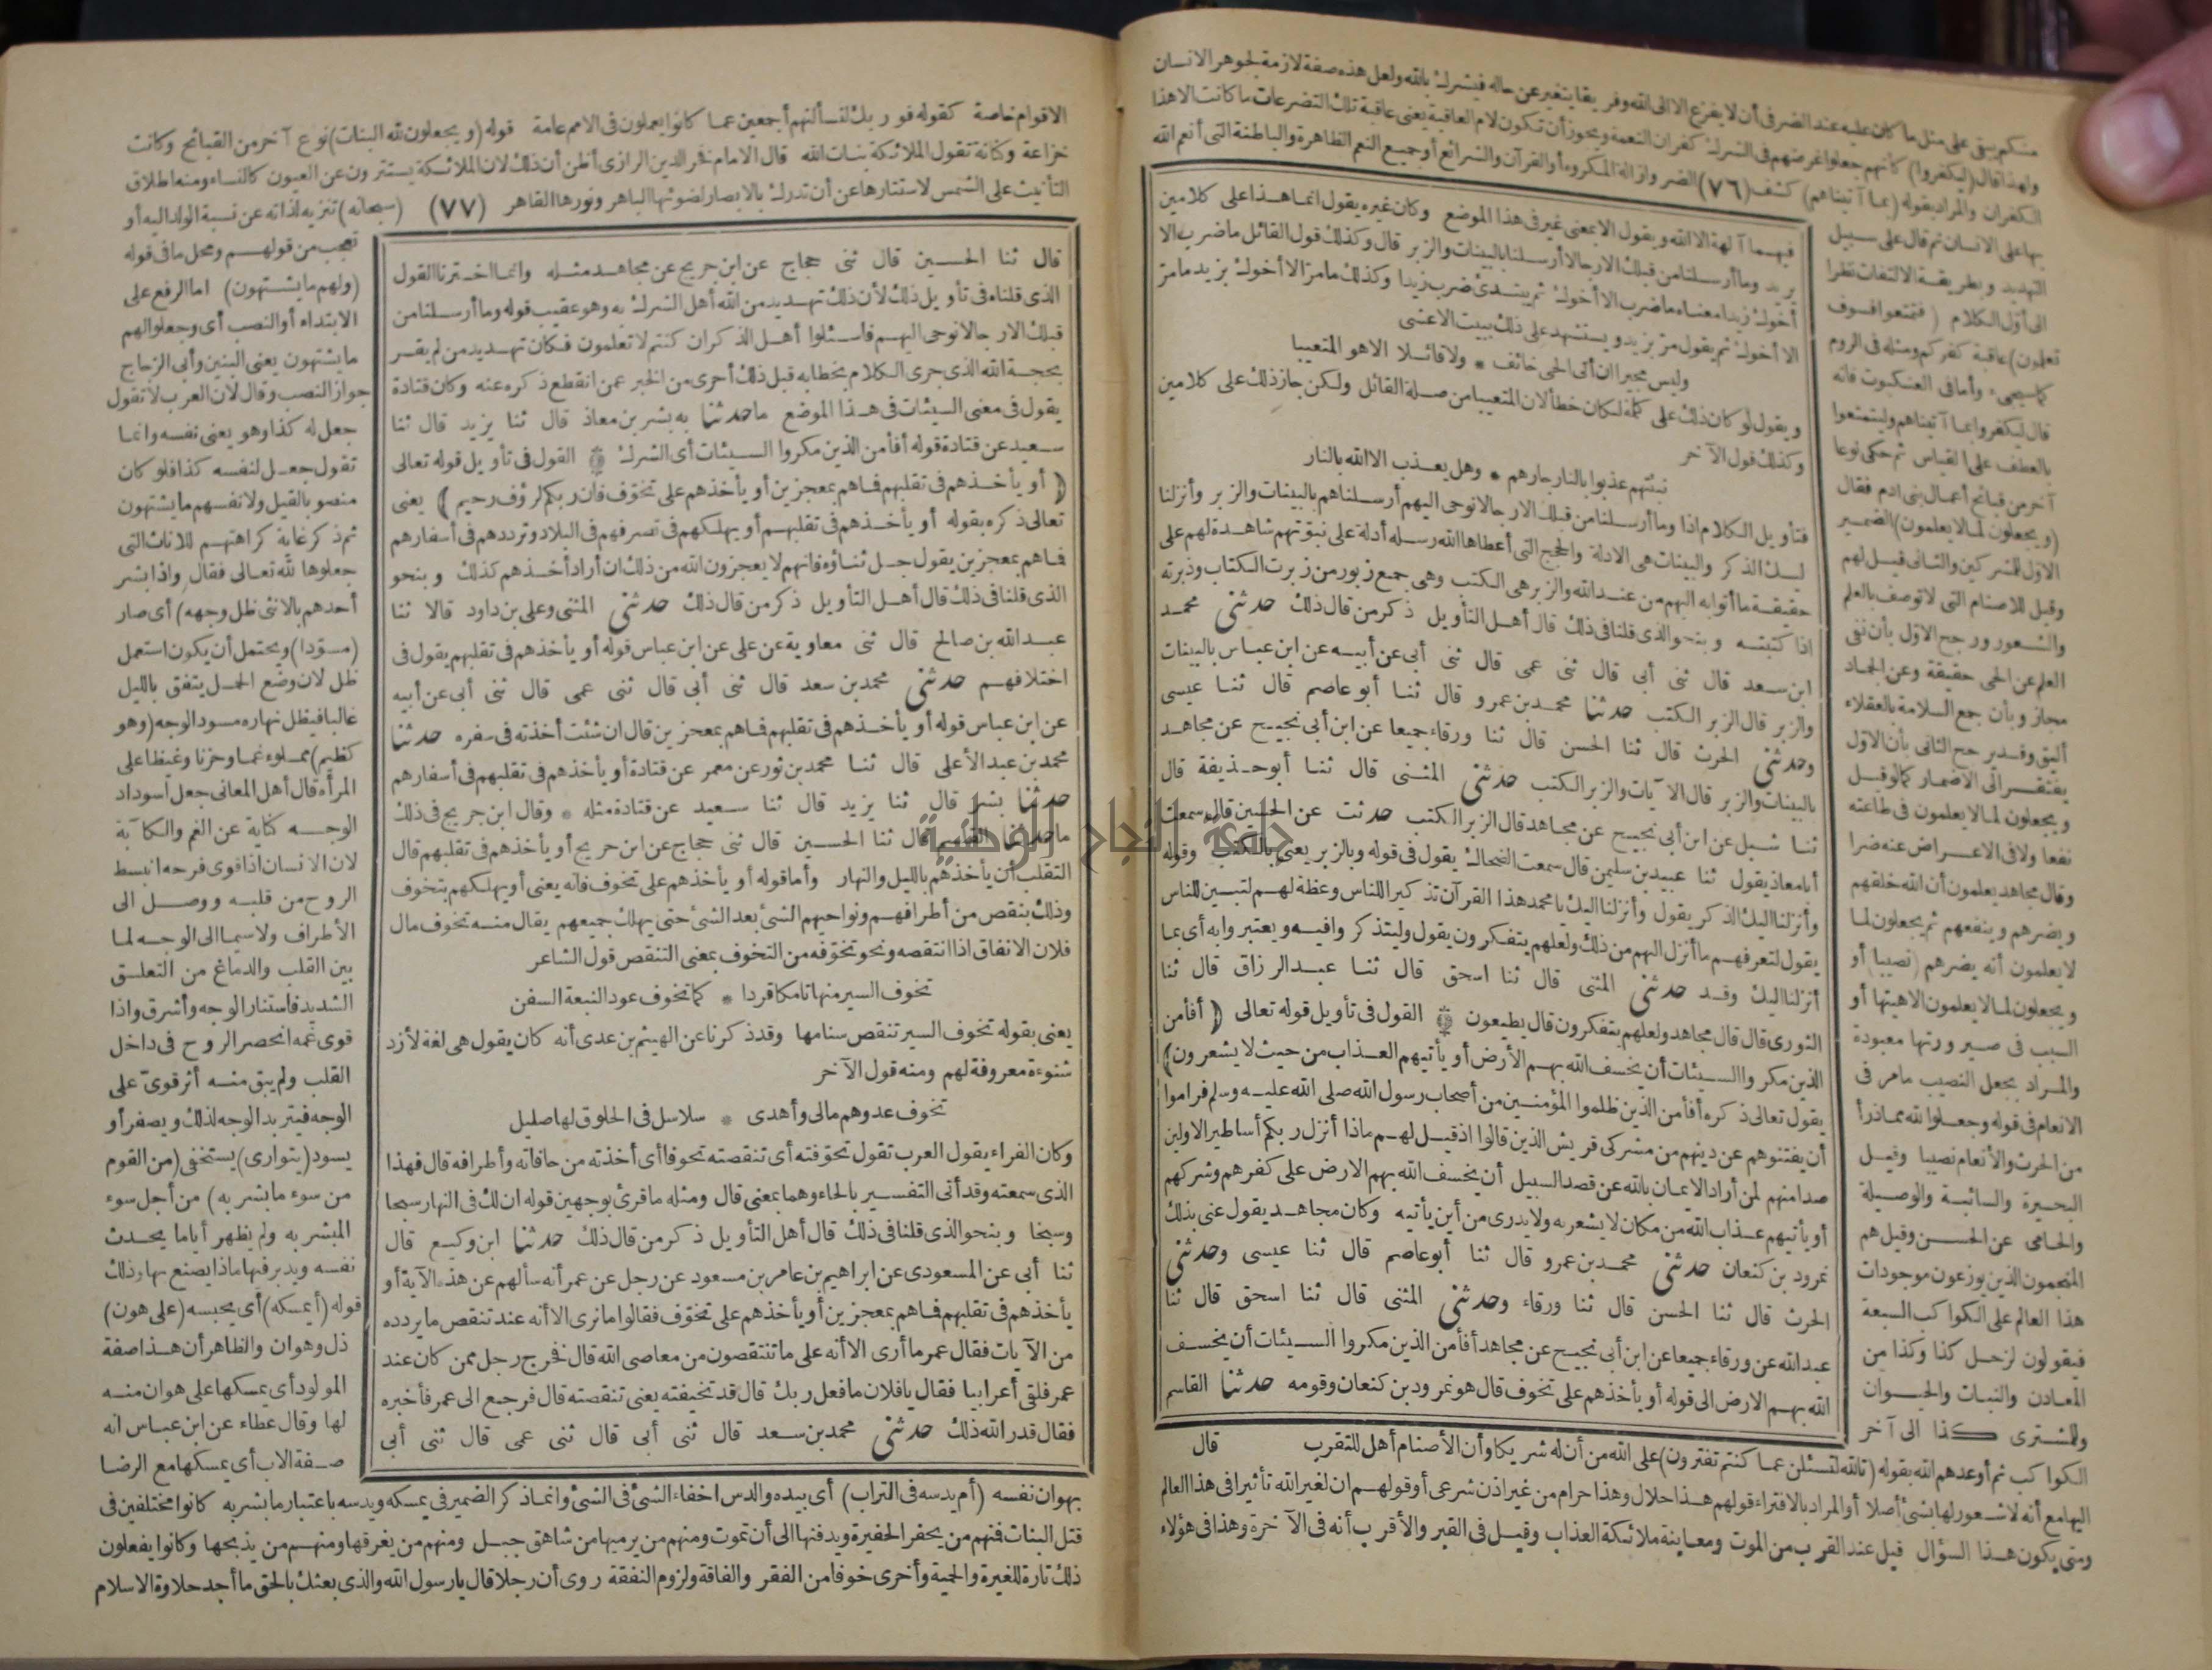 منكم يبقى على مثل ما كان عليه عند الضر فى أن لا يفزع الا الى الله وفريقا يتغير عن حاله فيشرك بالله ولعل هذه صفة لازمة لجوهر الانسان
ولهذا قال (ليكفروا) كأنهم جعلوا غرضهم فى الشرك كفران النعمة ويجوز أن تكون لام العاقبة يعنى عاقبة تلك التضرعات ما كانت الا هذا
الكفران والمراد بقوله (بما آتيناهم) كشف (٧٦) الضر وازالة المكروه أو القرآن والشرائع أو جميع النعم الظاهرة والباطنة التى أنعم الله
بها على الانسان ثم قال على سبيل
التهديد وبطريقة الالتفات نظرا
الى أوّل الكلام (فتمتعوا فسوف
تعلمون) عاقبة كفركم ومثله فى الروم
كما سيجىء وأما فى العنكبوت فانه
قال ليكفروا بما آتيناهم وليتمتعوا
بالعطف على القياس ثم حكى نوعا
آخر من قبائح أعمال بنى ادم فقال
(ويجعلون لما لا يعلمون) الضمير
الاوّل للمشركين والثانى قيل لهم
وقيل للاصنام التى لا توصف بالعلم
والشعور ورجح الاوّل بأن نفى
العلم عن الحى حقيقة وعن الجماد
مجاز وبأن جمع السلامة بالعقلاء
أليق وقد يرجح الثانى بأن الاوّل
يفتقر الى الاضمار كما لو قيل
ويجعلون لما لا يعلمون فى طاعته
نفعا ولا فى الاعراض عنه ضرا
وقال مجاهد يعلمون أن الله خلقهم
ويضرهم وينفعهم ثم يجعلون لما
لا يعلمون أنه يضرهم (نصيبا) أو
ويجعلون لما لا يعلمون الاهيتها أو
السبب فى صيرورتها معبودة
والمراد بجعل النصيب ما مر فى
الانعام فى قوله وجعلوا لله مما ذرأ
من الحرث والأنعام نصيبا وقيل
البحيرة والسائبة والوصيلة
والحامى عن الحسن وقيل هم
المنجمون الذين يوزعون موجودات
هذا العالم على الكواكب السبعة
فيقولون لزحل كذا وكذا من
المعادن والنبات والحيوان
وللمشترى كذا الى آخر
فيهما آلهة الا الله ويقول الا بمعنى غير فى هذا الموضع وكان غيره يقول انما هذا على كلامين
يريد وما أرسلنا من قبلك الا رجالا أرسلنا بالبينات والزبر قال وكذلك قول القائل ما ضرب الا
أخوك زيدا معناه ما ضرب الا أخوك ثم يبتدئ ضرب زيدا وكذلك ما مرّ الا أخوك بزيد ما مرّ
الا أخوك ثم يقول مرّ بزيد ويستشهد على ذلك ببيت الاعشى
وليس مجيرا ان أتى الحى خائف * ولا قائلا الا هو المتعيبا
ويقول لو كان ذلك على كلمة لكان خطأ لان المتعيبا من صلة القائل ولكن جاز ذلك على كلامين
وكذلك قول الآخر
نبئتهم عذبوا بالنار جارهم * وهل يعذب الا الله بالنار
فتأويل الكلام اذا وما أرسلنا من قبلك الا رجالا نوحى اليهم أرسلناهم بالبينات والزبر وأنزلنا
ليك الذكر والبينات هى الادلة والحجج التى أعطاها الله رسله أدلة على نبوّتهم شاهدة لهم على
حقيقة ما أتوا به اليهم من عند الله والزبر هى الكتب وهى جمع زبور من زبرت الكتاب وذبرته
اذا كتبته وبنحو الذى قلنا فى ذلك قال أهل التأويل ذكر من قال ذلك حدثنى محمد
ابن سعد قال ثنى أبى قال ثنى عمى قال ثنى أبى عن أبيه عن ابن عباس بالبينات
والزبر قال الزبر الكتب حدثنا محمد بن عمرو قال ثنا أبو عاصم قال ثنا عيسى
وحدثنى الحرث قال ثنا الحسن قال ثنا ورقاء جميعا عن ابن أبى نجيح عن مجاهد
بالبينات والزبر قال الآيات والزبر الكتب حدثنى المثنى قال ثنا أبو حذيفة قال
ثنا شبل عن ابن أبى نجيح عن مجاهد قال الزبر الكتب حدثت عن الحسين قال سمعت
أبا معاذ يقول ثنا عبيد بن سليمن قال سمعت الضحاك يقول فى قوله وبالزبر يعنى بالكتب وقوله
وأنزلنا اليك الذكر يقول وأنزلنا اليك يا محمد هذا القرآن تذكيرا للناس وعظة لهم لتبين للناس
يقول لتعرفهم ما أنزل اليهم من ذلك ولعلهم يتفكرون يقول وليتذكروا فيه ويعتبروا به أى بما
أنزلنا اليك وقد حدثنى المثنى قال ثنا اسحق قال ثنا عبد الرزاق قال ثنا
الثورى قال قال مجاهد ولعلهم يتفكرون قال يطيعون القول فى تأويل قوله تعالى ﴿أفأمن
الذين مكروا السيئات أن يخسف الله بهم الأرض أو يأتيهم العذاب من حيث لا يشعرون﴾
يقول تعالى ذكره أفأمن الذين ظلموا المؤمنين من أصحاب رسول الله صلى الله عليه وسلم فراموا
أن يفتنوهم عن دينهم من مشركى قريش الذين قالوا اذ قيل لهم ماذا أنزل ربكم أساطير الاولين
صدا منهم لمن أراد الايمان بالله عن قصد السبيل أن يخسف الله بهم الارض على كفرهم وشركهم
أو يأتيهم عذاب الله من مكان لا يشعر به ولا يدرى من أين يأتيه وكان مجاهد يقول عنى بذلك
نمرود بن كنعان حدثنى محمد بن عمرو قال ثنا أبو عاصم قال ثنا عيسى وحدثنى
الحرث قال ثنا الحسن قال ثنا ورقاء وحدثنى المثنى قال ثنا اسحق قال ثنا
عبد الله عن ورقاء جميعا عن ابن أبى نجيح عن مجاهد أفأمن الذين مكروا السيئات أن يخسف
الله بهم الارض الى قوله أو يأخذهم على تخوف قال هو نمرود بن كنعان وقومه حدثنا القاسم
قال
الكواكب ثم أوعدهم الله بقوله (تالله لتسئلن عما كنتم تفترون) على الله من أن له شريكا وأن الأصنام أهل للتقرب
اليها مع أنه لا شعور لها بشئ أصلا أو المراد بالافتراء قولهم هذا حلال وهذا حرام من غير اذن شرعى أو قولهم ان لغير الله تأثيرا فى هذا العالم
ومتى يكون هذا السؤال قيل عند القرب من الموت ومعاينة ملائكة العذاب وقيل فى القبر والأقرب أنه فى الآخرة وهذا فى هؤلاء
الاقوام خاصة كقوله فوربك لنسألنهم أجمعين عما كانوا يعملون فى الامم عامة قوله (ويجعلون لله البنات) نوع آخر من القبائح وكانت
خزاعة وكنانة تقول الملائكة بنات الله قال الامام فخر الدين الرازى أظن أن ذلك لان الملائكة يستترون عن العيون كالنساء ومنه اطلاق
التأنيث على الشمس لاستتارها عن أن تدرك بالابصار لضوئها الباهر ونورها القاهر (٧٧) (سبحانه) تنزيه لذاته عن نسبة الولد اليه أو
تعجب من قولهم ومحل ما فى قوله
(ولهم ما يشتهون) اما الرفع على
الابتداء أو النصب أى وجعلوا لهم
ما يشتهون يعنى البنين وأبى الزجاج
جواز النصب وقال لأن العرب لا تقول
جعل له كذا وهو يعنى نفسه وانما
تقول جعل لنفسه كذا فلو كان
منصوبا لقيل ولانفسهم ما يشتهون
ثم ذكر غاية كراهتهم للاناث التى
جعلوها لله تعالى فقال (واذا بشر
أحدهم بالانثى ظل وجهه) أى صار
(مسوّدا) ويحتمل أن يكون استعمل
ظل لان وضع الحمل يتفق بالليل
غالبا فيظل نهاره مسود الوجه (وهو
كظيم) مملوء غما وحزنا وغيظا على
المرأة قال أهل المعانى جعل اسوداد
الوجه كناية عن الغم والكآبة
لان الانسان اذا قوى فرحه انبسط
الروح من قلبه ووصل الى
الأطراف ولا سيما الى الوجه لما
بين القلب والدماغ من التعلق
الشديد فاستنار الوجه وأشرق واذا
قوى غمه انحصر الروح فى داخل
القلب ولم يبق منه أثر قوىّ على
الوجه فيتربد الوجه لذلك ويصفر أو
يسود (يتوارى) يستخفى (من القوم
من سوء ما بشر به) من أجل سوء
المبشر به ولم يظهر أياما يحدث
نفسه ويدبر فيها ماذا يصنع بها وذلك
قوله (أيمسكه) أى يحبسه (على هون)
ذل وهوان والظاهر أن هذا صفة
المولود أى يمسكها على هوان منه
لها وقال عطاء عن ابن عباس انه
صفة الاب أى يمسكها مع الرضا
قال ثنا الحسين قال ثنى حجاج عن ابن جريج عن مجاهد مثله وانما اخترنا القول
الذى قلناه فى تأويل ذلك لأن ذلك تهديد من الله أهل الشرك به وهو عقيب قوله وما أرسلنا من
قبلك الا رجالا نوحى اليهم فاسئلوا أهل الذكر ان كنتم لا تعلمون فكان تهديد من لم يقر
بحجة الله الذى جرى الكلام بخطابه قبل ذلك أحرى من الخبر عمن انقطع ذكره عنه وكان قتادة
يقول فى معنى السيئات فى هذا الموضع ما حدثنا به بشر بن معاذ قال ثنا يزيد قال ثنا
سعيد عن قتادة قوله أفأمن الذين مكروا السيئات أى الشرك القول فى تأويل قوله تعالى
﴿أو يأخذهم فى تقلبهم فما هم بمعجزين أو يأخذهم على تخوّف فان ربكم لرؤف رحيم﴾ يعنى
تعالى ذكره بقوله أو يأخذهم فى تقلبهم أو يهلكهم فى تصرفهم فى البلاد وترددهم فى أسفارهم
فما هم بمعجزين يقول جل ثناؤه فانهم لا يعجزون الله من ذلك ان أراد أخذهم كذلك وبنحو
الذى قلنا فى ذلك قال أهل التأويل ذكر من قال ذلك حدثنى المثنى وعلى بن داود قالا ثنا
عبد الله بن صالح قال ثنى معاوية عن على عن ابن عباس قوله أو يأخذهم فى تقلبهم يقول فى
اختلافهم حدثنى محمد بن سعد قال ثنى أبى قال ثنى عمى قال ثنى أبى عن أبيه
عن ابن عباس قوله أو يأخذهم فى تقلبهم فما هم بمعجزين قال ان شئت أخذته فى سفره حدثنا
محمد بن عبد الأعلى قال ثنا محمد بن ثور عن معمر عن قتادة أو يأخذهم فى تقلبهم فى أسفارهم
حدثنا بشر قال ثنا يزيد قال ثنا سعيد عن قتادة مثله * وقال ابن جريج فى ذلك
ما حدثنا القاسم قال ثنا الحسين قال ثنى حجاج عن ابن جريج أو يأخذهم فى تقلبهم قال
التقلب أن يأخذهم بالليل والنهار وأما قوله أو يأخذهم على تخوف فانه يعنى أو يهلكهم بتخوف
وذلك بنقص من أطرافهم ونواحيهم الشئ بعد الشئ حتى يهلك جميعهم يقال منه تخوف مال
فلان الانفاق اذا انتقصه ونحو تخوّفه من التخوف بمعنى التنقص قول الشاعر
تخوف السير منها تامكا قردا * كما تخوف عود النبعة السفن
يعنى بقوله تخوف السير تنقص سنامها وقد ذكرنا عن الهيثم بن عدى أنه كان يقول هى لغة لأزد
شنوءة معروفة لهم ومنه قول الآخر
تخوف عدوهم مالى وأهدى * سلاسل فى الحلوق لها صليل
وكان الفراء يقول العرب تقول تحوّفته أى تنقصته تحوفا أى أخذته من حافاته وأطرافه قال فهذا
الذى سمعته وقد أتى التفسير بالحاء وهما بمعنى قال ومثله ما قرئ بوجهين قوله ان لك فى النهار سبحا
وسبخا وبنحو الذى قلنا فى ذلك قال أهل التأويل ذكر من قال ذلك حدثنا ابن وكيع قال
ثنا أبى عن المسعودى عن ابراهيم بن عامر بن مسعود عن رجل عن عمر أنه سألهم عن هذه الآية أو
يأخذهم فى تقلبهم فما هم بمعجزين أو يأخذهم على تخوّف فقالوا ما نرى الا أنه عند تنقص ما يردده
من الآيات فقال عمر ما أرى الا أنه على ما تنتقصون من معاصى الله قال فخرج رجل ممن كان عند
عمر فلقى أعرابيا فقال يا فلان ما فعل ربك قال قد تخيفته يعنى تنقصته قال فرجع الى عمر فأخبره
فقال قدر الله ذلك حدثنى محمد بن سعد قال ثنى أبى قال ثنى عمى قال ثنى أبى
بهوان نفسه (أم يدسه فى التراب) أى يبيده والدس اخفاء الشئ فى الشئ وانما ذكر الضمير فى يمسكه ويدسه باعتبار ما بشر به كانوا مختلفين فى
قتل البنات فمنهم من يحفر الحفيرة ويدفنها الى أن تموت ومنهم من يرميها من شاهق جبل ومنهم من يغرقها ومنهم من يذبحها وكانوا يفعلون
ذلك تارة للغيرة والحمية وأخرى خوفا من الفقر والفاقة ولزوم النفقة روى أن رجلا قال يا رسول الله والذى بعثك بالحق ما أجد حلاوة الاسلام
جامعة النجاح الوطنية